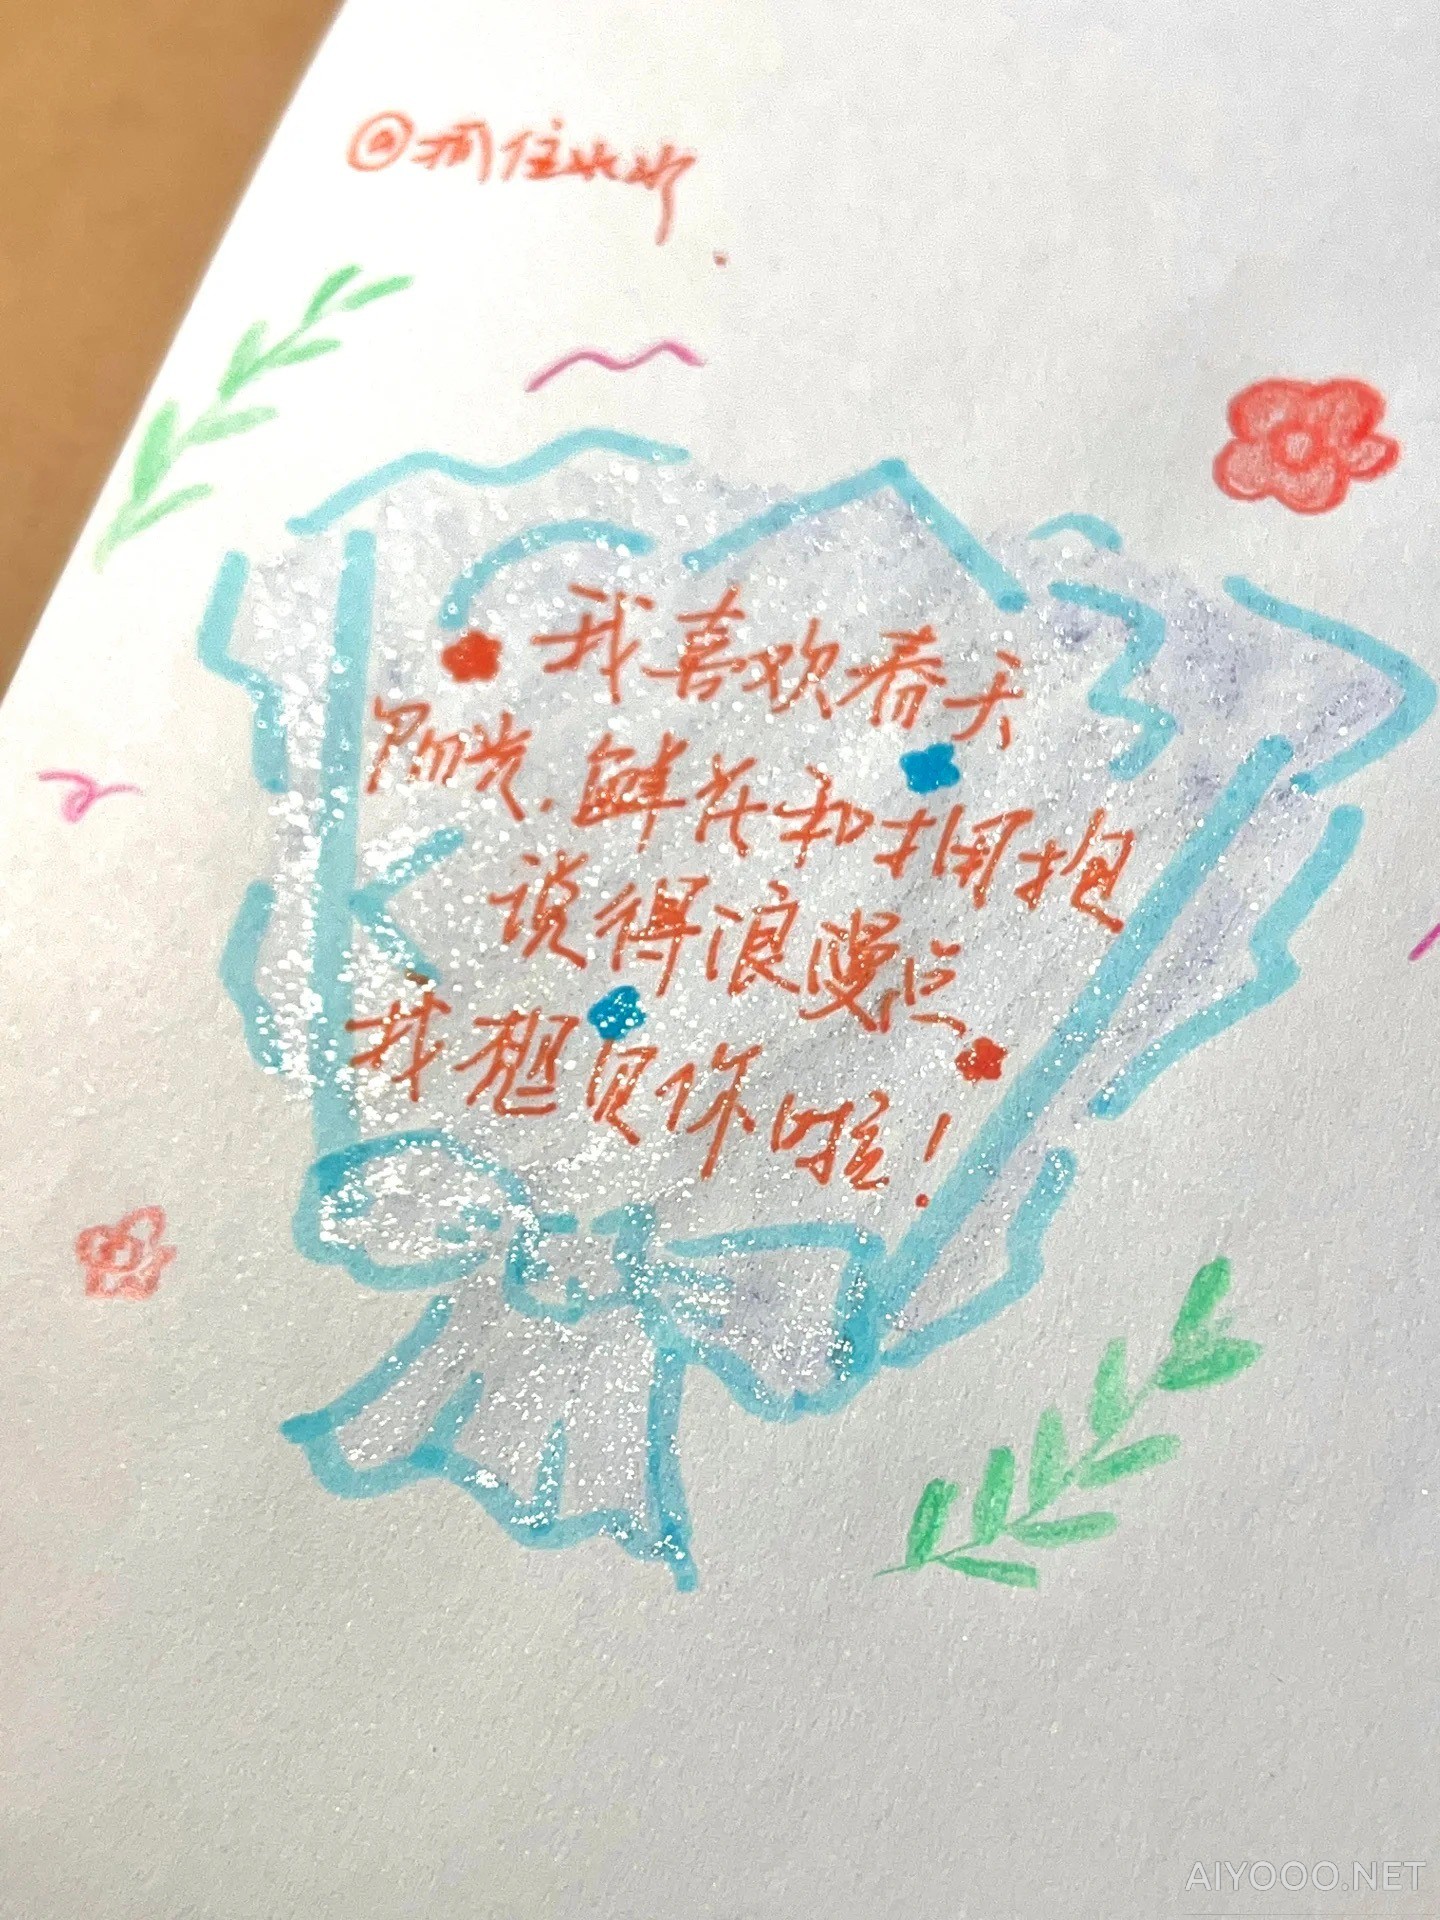 @抓住水水
我喜欢春天
阳光、鲜花和拥抱
说得浪漫点
我想见你啦！
AIYOOO.NET